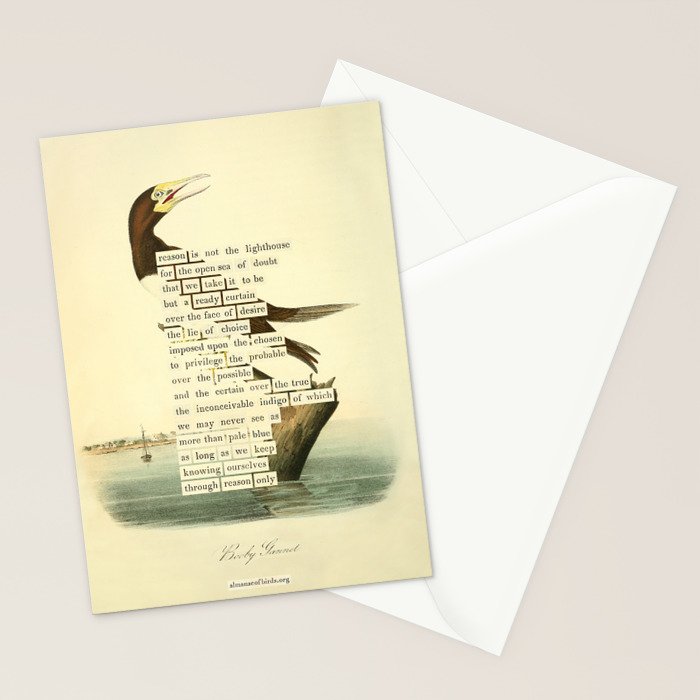 reason is not the lighthouse
for the open sea of doubt
that we take it to be
but a ready curtain
over the face of desire
the lie of choice
imposed upon the chosen
to privilege the probable
over the possible
and the certain over the true
the inconceivable indigo of which
we may never see as
more than pale blue
as long as we keep
knowing ourselves
through reason only
Booby Gannet
almanacofbirds.org